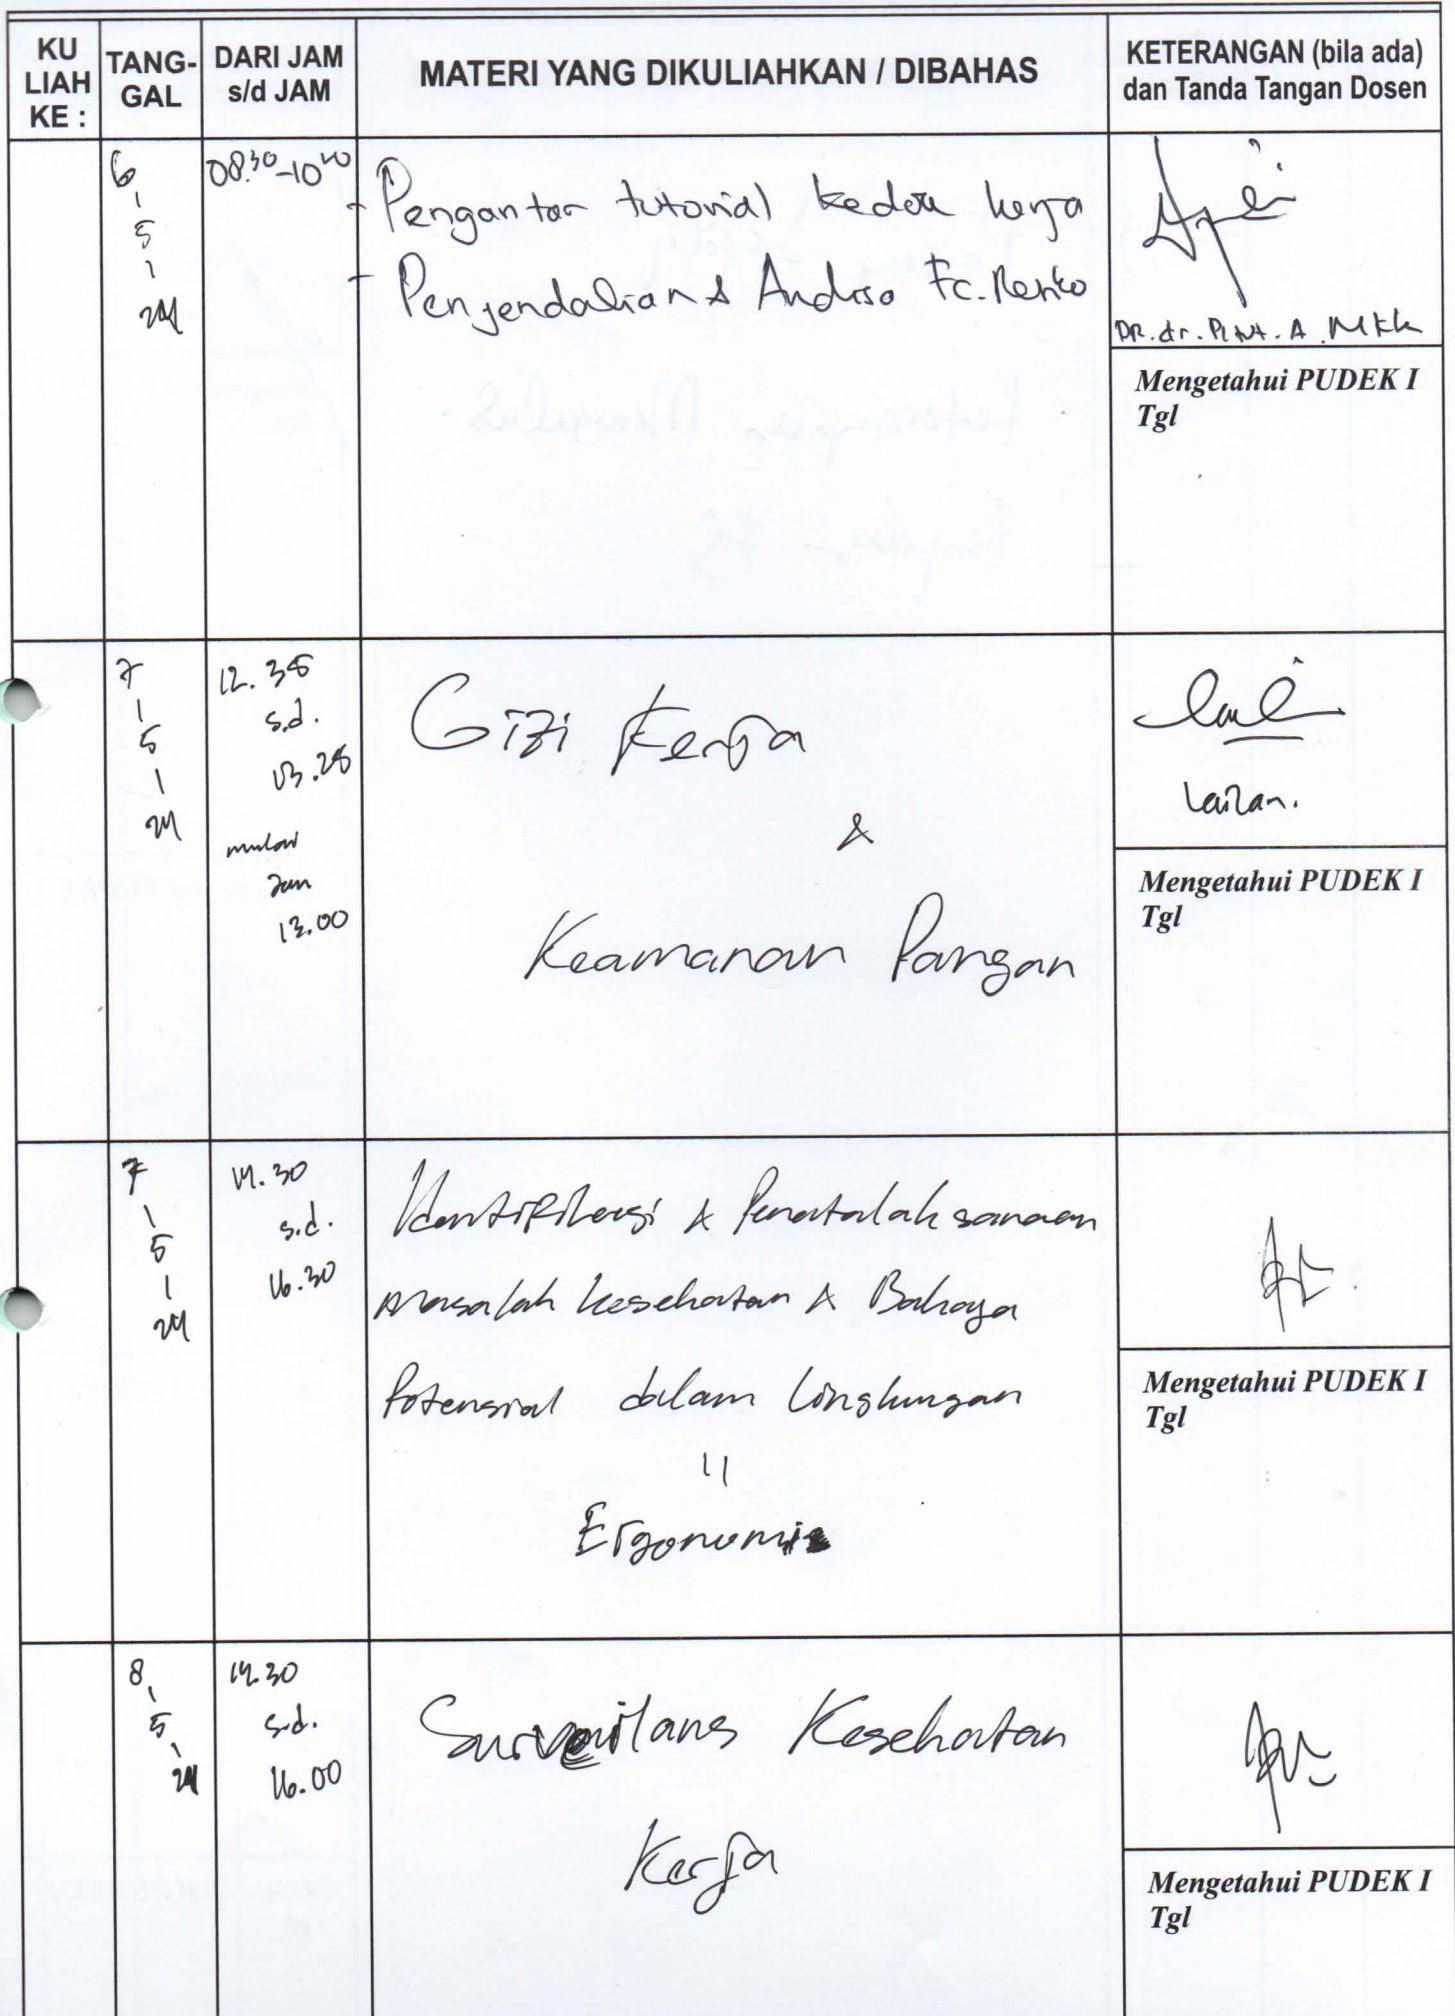 KU LIAH KE :
TANG-GAL
DARI JAM s/d JAM
MATERI YANG DIKULIAHKAN / DIBAHAS
KETERANGAN (bila ada) dan Tanda Tangan Dosen
6 - 5 - 24
08.30-10
- Pengantar tutorial kedok kerja
- Pengendalian & Fc.
DR. dr. A. MKK
Mengetahui PUDEK I
Tgl
7 - 5 - 24
12.35
s.d.
13.25
mulai
Jam
13.00
Gizi Kerja
&
Keamanan Pangan
Lailan.
Mengetahui PUDEK I
Tgl
7 - 5 - 24
14.30
s.d.
16.30
Identifikasi & Penatalaksanaan
masalah kesehatan & Bahaya
Potensial dalam Lingkungan
=
Ergonomis
Mengetahui PUDEK I
Tgl
8 - 5 - 24
14.30
s.d.
16.00
Surveilans Kesehatan
Kerja
Mengetahui PUDEK I
Tgl